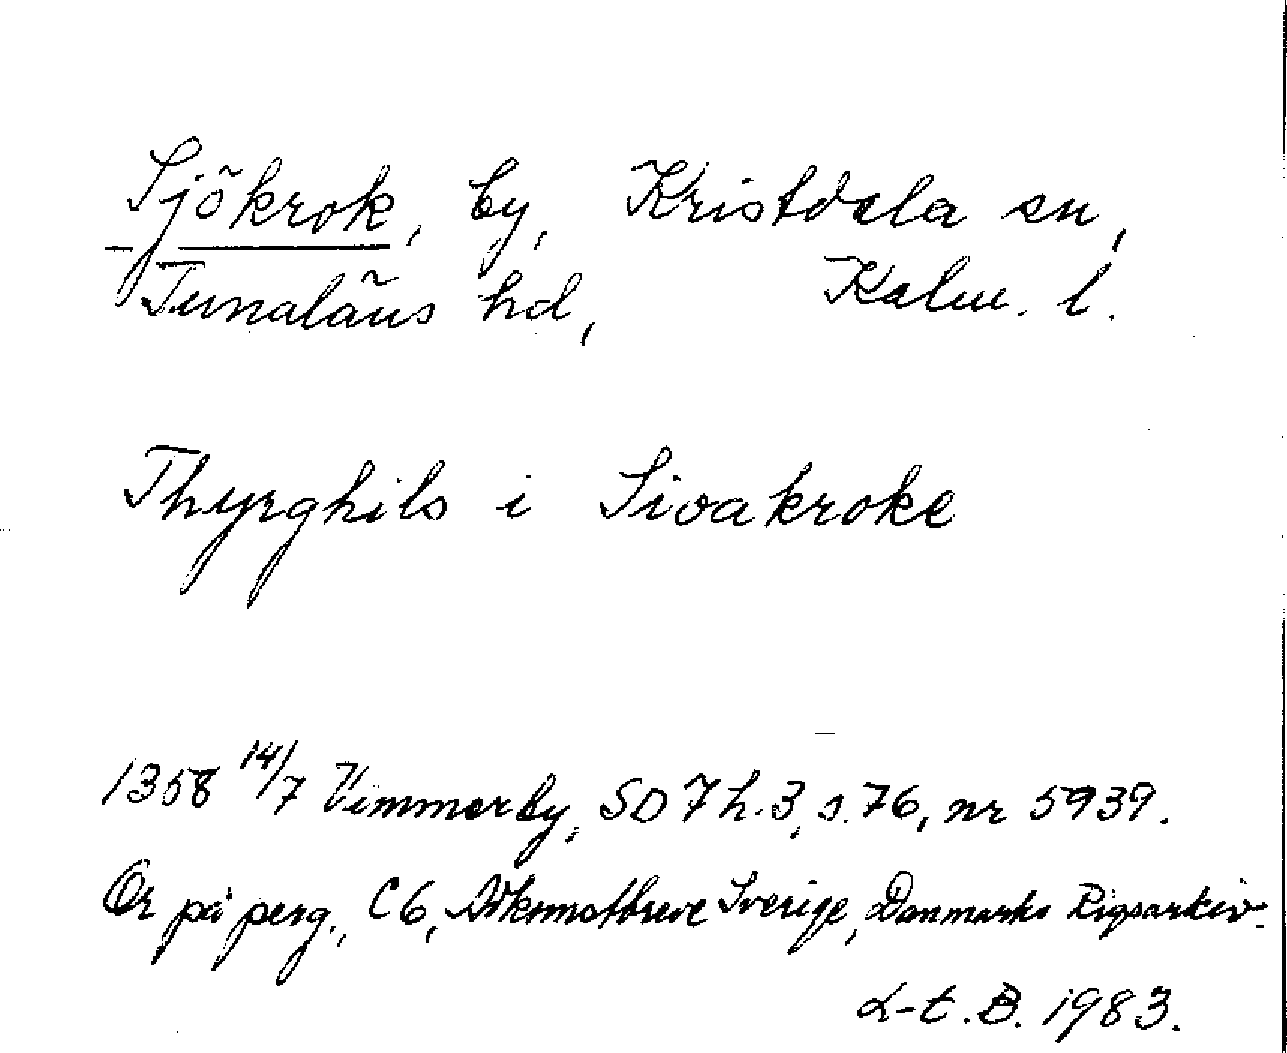 Sjökrok, by, Kristdala sn,
Tunaläns hd, Kalm. l.
Thyrghils i Sivakroke
1358 14/7 Vimmerby, SD 7 h.3, s.76, nr 5939.
Or på perg., C6, Adkomstbreve Sverige, Danmarks Rigsarkiv.
L-t. B. 1983.